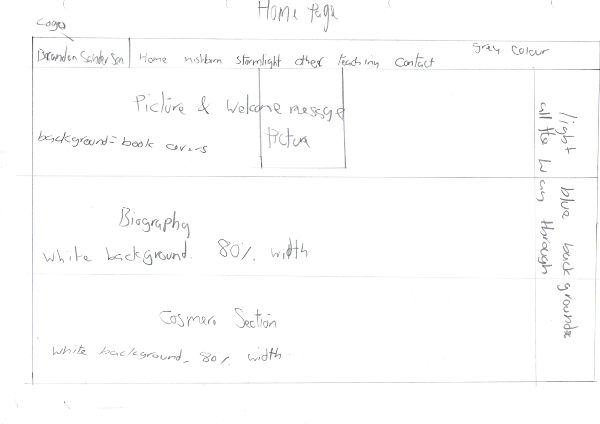 Home Page
Logo
Grey Colour
Brandon Sanderson Home mistborn stormlight other teaching contact
Picture & Welcome message
Picture
background = book covers
light blue background
all the way through
Biography
white background. 80% width
Cosmere Section
white background. 80% width